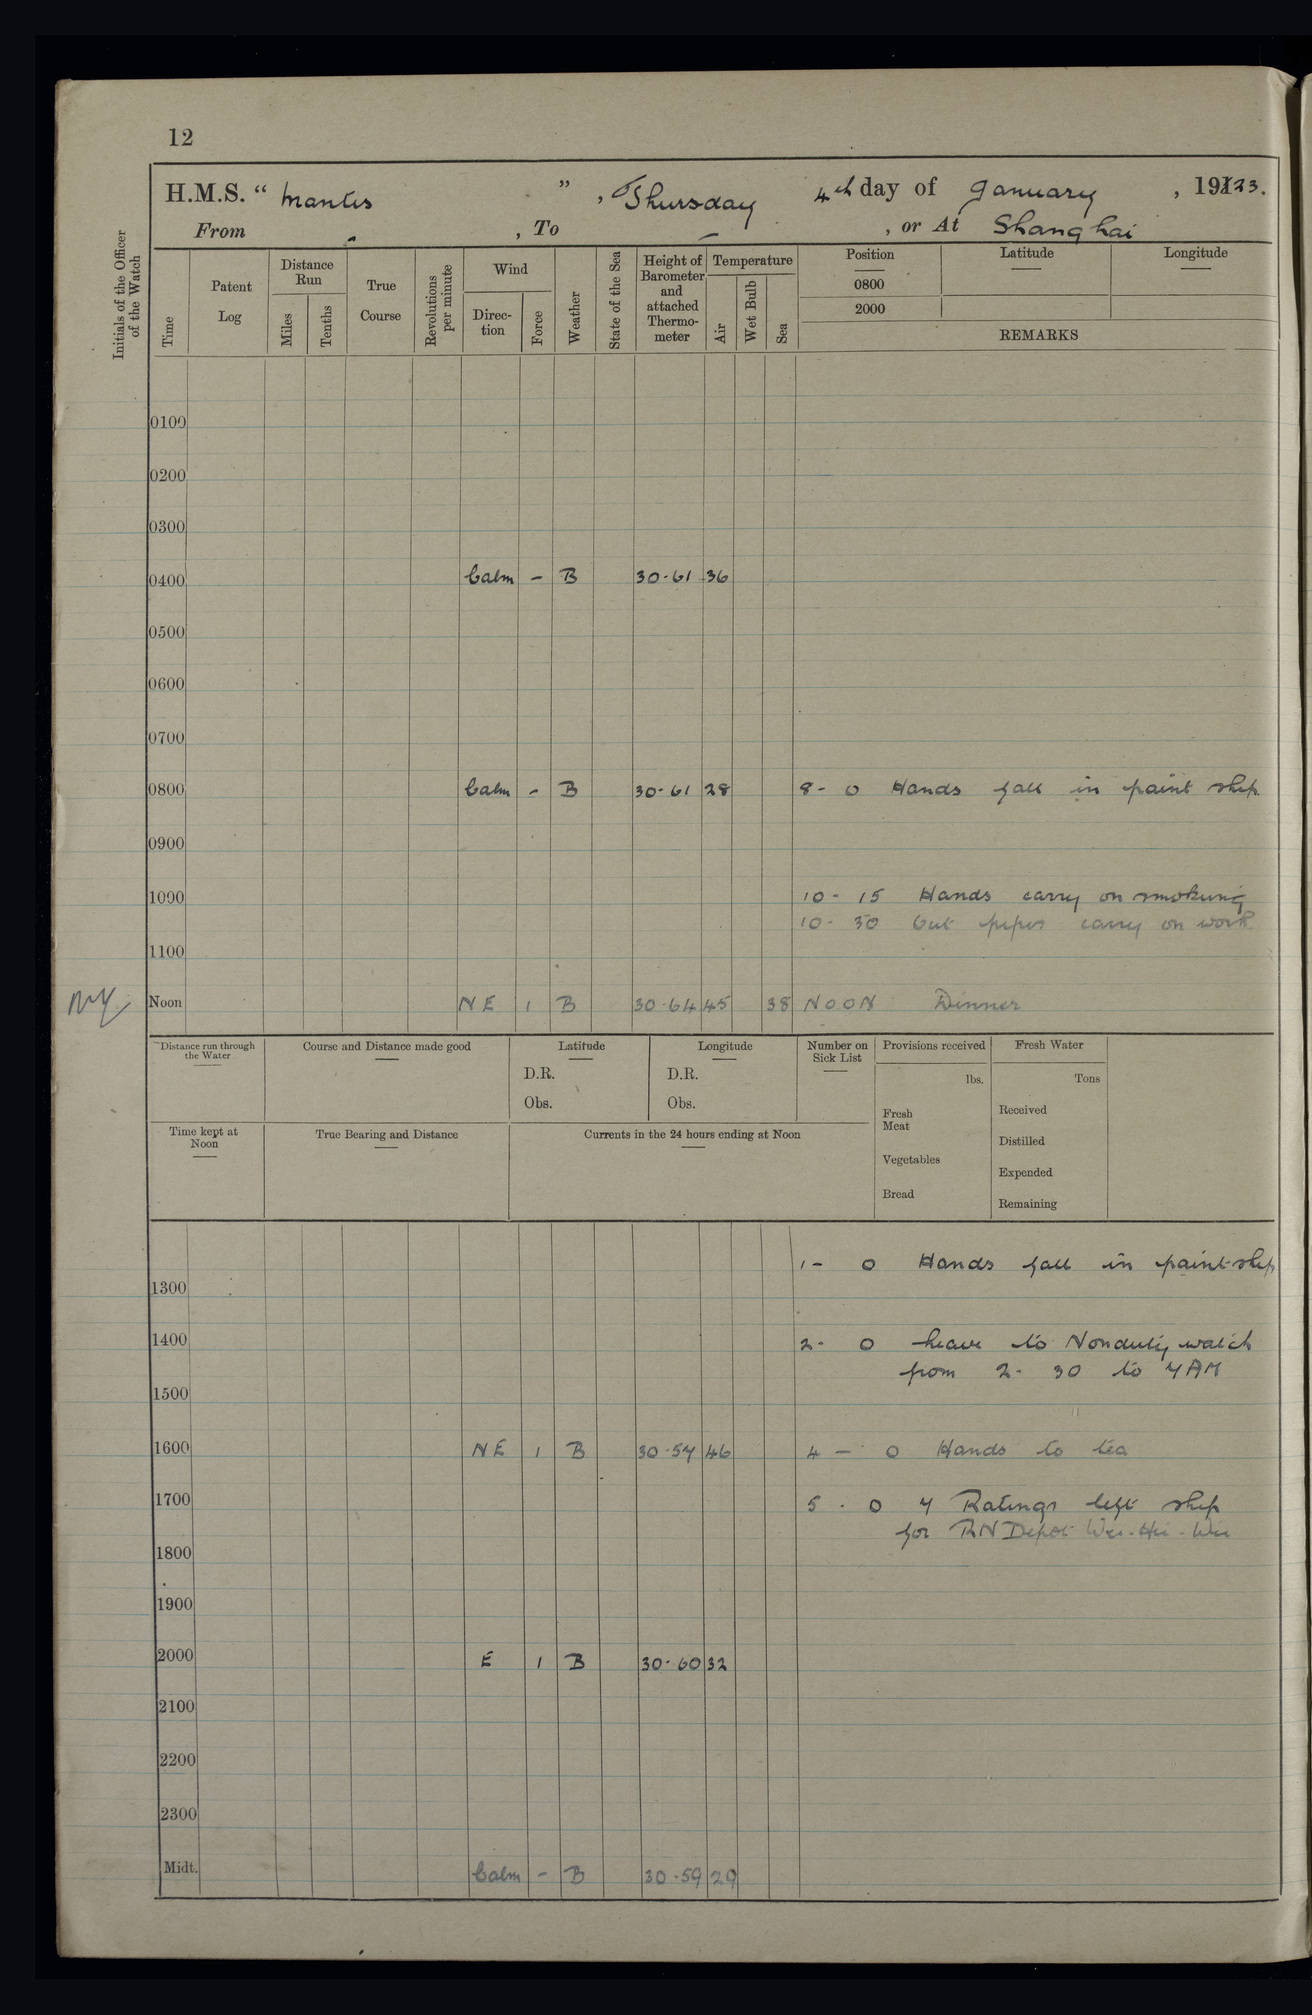 12
H.M.S. “ Mantis ” , Thursday 4th day of January , 1923.
From - , To - , or At Shanghai
Initials of the Officer of the Watch
Time
Patent Log
Distance Run
Miles
Tenths
True Course
Revolutions per minute
Wind
Direc-tion
Force
Weather
State of the Sea
Height of Barometer and attached Thermo-meter
Temperature
Air
Wet Bulb
Sea
Position
0800
2000
Latitude
Longitude
REMARKS
0100
0200
0300
0400 Calm - B 30.61 36
0500
0600
0700
0800 Calm - B 30.61 28 8- 0 Hands fall in paint ship
0900
1000 10- 15 Hands carry on smoking
10- 30 Out pipes carry on work
1100
Noon NE 1 B 30.64 45 38 NOON Dinner
Distance run through the Water
Course and Distance made good
Latitude
D.R.
Obs.
Longitude
D.R.
Obs.
Number on Sick List
Provisions received
lbs.
Fresh Meat
Vegetables
Bread
Fresh Water
Tons
Received
Distilled
Expended
Remaining
Time kept at Noon
True Bearing and Distance
Currents in the 24 hours ending at Noon
1- 0 Hands fall in paint-ship
1300
1400 2- 0 Leave to Nonduty watch
from 2- 30 to 7AM
1500
1600 NE 1 B 30.57 46 4 - 0 Hands to tea
1700 5 - 0 7 Ratings left ship
for RN Depot Wei-Hei-Wei
1800
1900
2000 E 1 B 30.60 32
2100
2200
2300
Midt. Calm - B 30.59 29